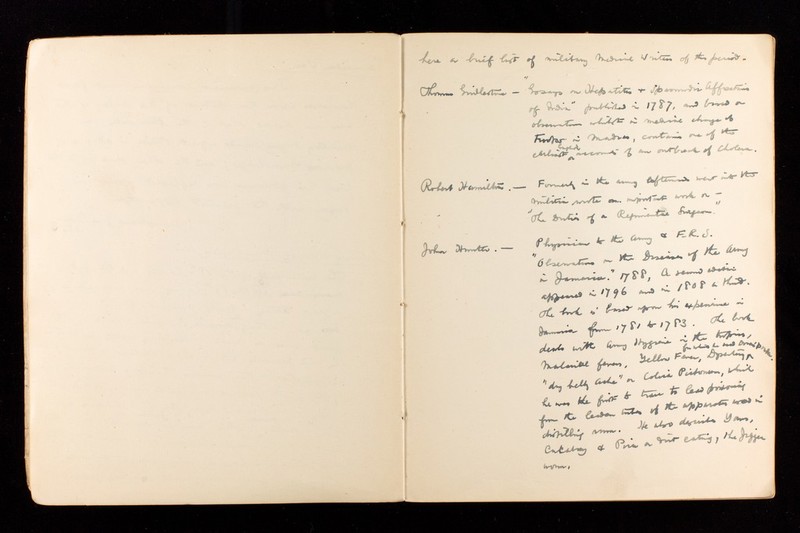 here a brief list of military medical writers of the period.
Thomas Girdlestone — "Essays on Hepatitis & Spasmodic Affections
of India" published in 1787, and based on
observations whilst in medical charge of
troops in Madras, contains one of the
earliest accounts of an outbreak of cholera.
Robert Hamilton. — Formerly in the army afterwards went into the
militia, wrote an important work on —
"The Duties of a Regimental Surgeon."
John Hunter. — Physician to the Army & F.R.S.
"Observations on the Diseases of the Army
in Jamaica." 1788, a second edition
appeared in 1796 and in 1808 a third.
The book is based upon his experience in
Jamaica from 1781 to 1783. The book
deals with Army Hygiene in the tropics,
Malarial fevers, Yellow Fever, Dysentery,
"dry belly ache" or Colica Pictonum, which
he was the first to trace to lead poisoning
from the leaden tubes of the apparatus used in
distilling rum. He also describes Yaws,
& Pica or dirt eating, the Jigger
worm.